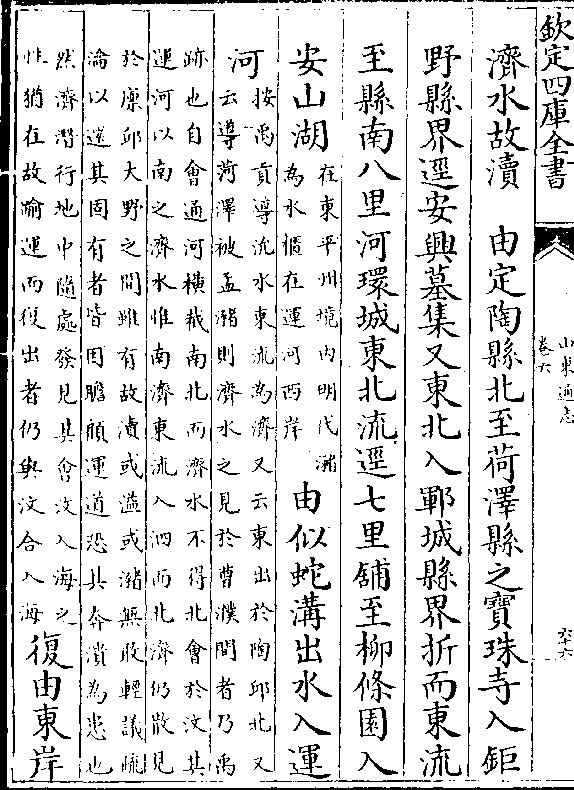 欽定四庫全書
山東通志
卷六
濟水故瀆　由定陶縣北至荷澤縣之寶珠寺入鉅
野縣界逕安興墓集又東北入鄆城縣界折而東流
至縣南八里河環城東北流逕七里舖至柳條園入
安山湖
在東平州境内明代瀦
為水櫃在運河西岸
由似蛇溝出水入運
河
按禹貢導沇水東流為濟又云東出於陶邱北又
云導菏澤被孟瀦則濟水之見於曹濮間者乃禹
跡也自會通河橫截南北而濟水不得北會於汶其
運河以南之濟水惟南濟東流入泗而北濟仍散見
於廪邱大野之間雖有故瀆或溢或瀦無敢輕議疏
瀹以還其固有者皆因瞻顧運道恐其奔潰為患也
然濟潛行地中隨處發見其會汶入海之
性猶在故踰運而復出者仍與汶合入海
復由東岸